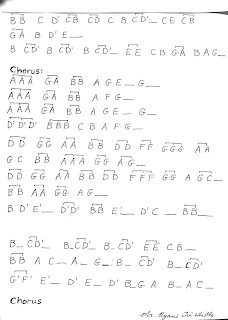 BB C D' CB CD C B CD'_ CE CB
GA B D' E__
B CD' B CD' B CD'_ EE CB GA BAG_
Chorus:
AAA GA BB AGE_G_
AAA GA BB AFG_
AAA GA BB AGE_G_
D'D'D' BBB CBAFG_
DD GG AA BB DD FF GGG AA
GC BB AAA GG AG_
DD GG AA BB DD FFF GG AGC_
BB AA GG AG__
BD'E'_ D'D' BB E'_ D'C_BB_
B_CD'_ B_CD'_ B_CD' EE CB_
BB AC_A_G_B_CD' B_CD'
G'F' E'_D'E_D'B_GA B_AC_
Chorus
Mr. Ryan/ Tin Whistle